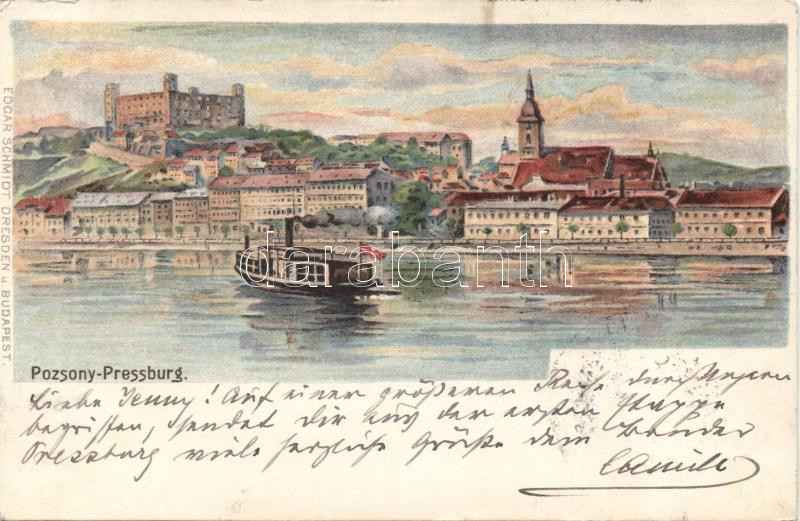 EDGAR SCHMIDT, DRESDEN u. BUDAPEST.
darabanth
Pozsony-Pressburg.
Liebe Jenny! Auf einer größeren Reise durch Ungarn
begriffen, sendet Dir aus der ersten Etappe
Pressburg viele herzliche Grüße dein Bruder
Camill